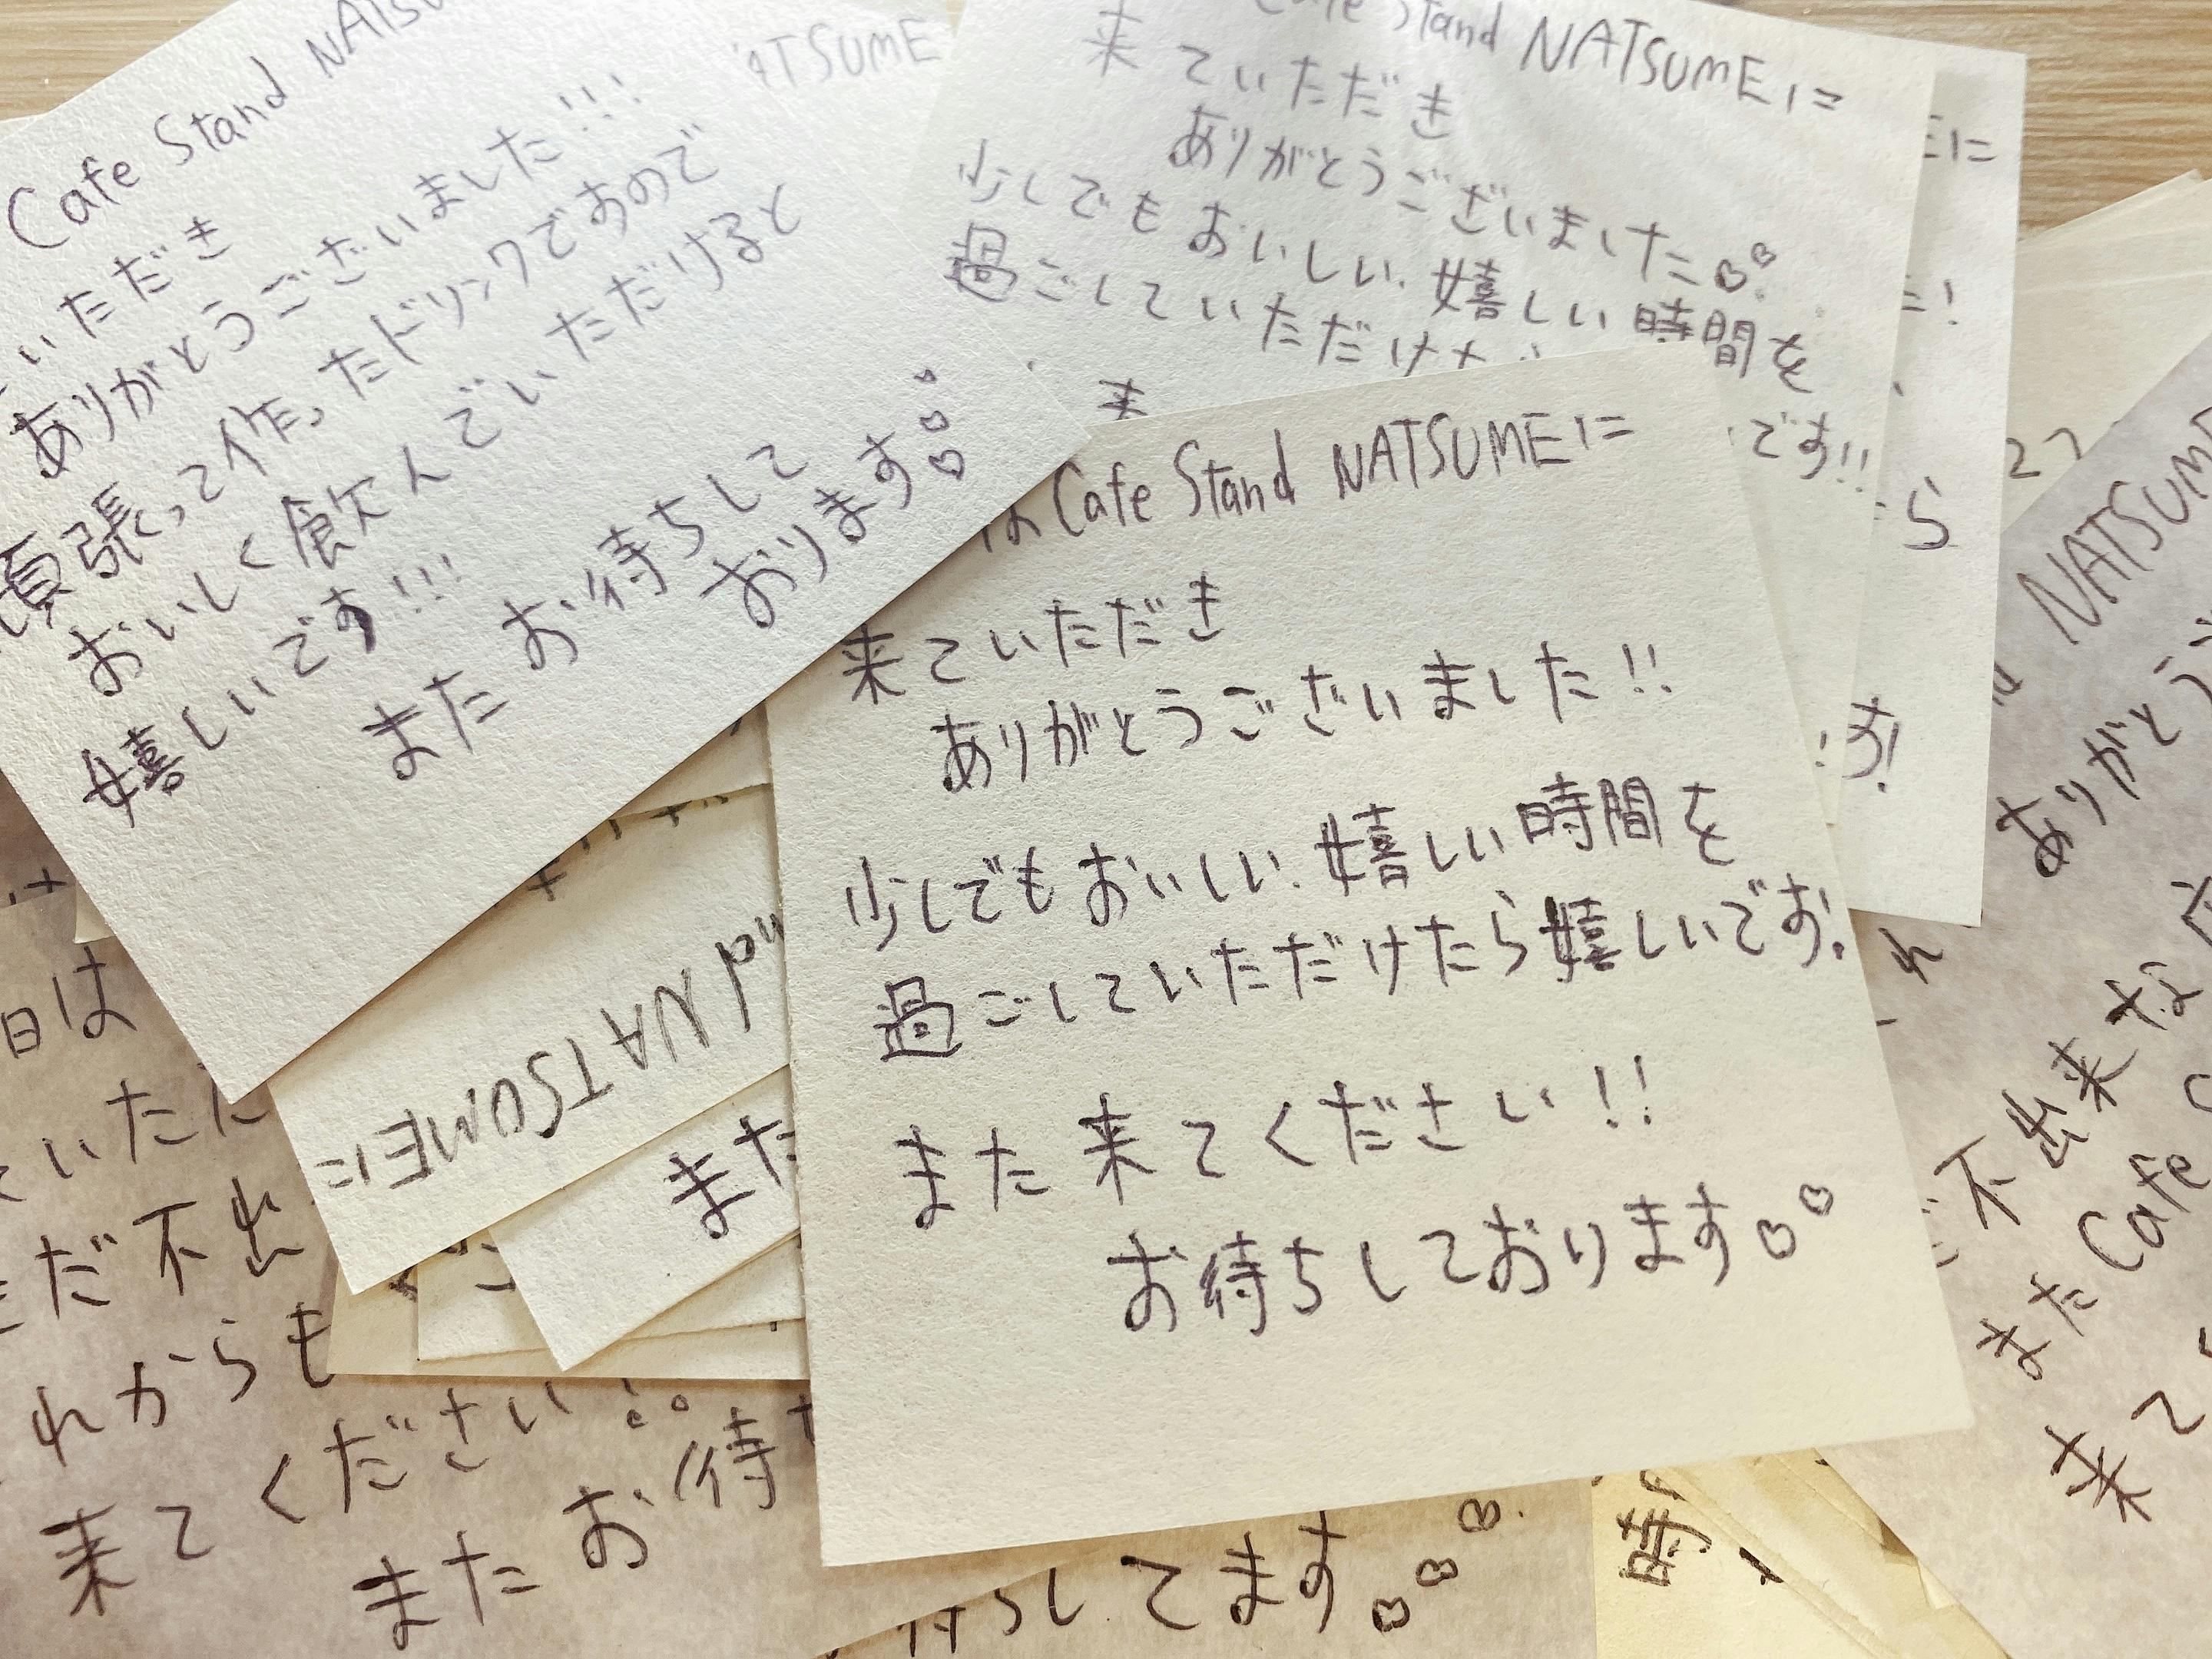 Cafe Stand
いただき
ありがとうございました!!!
頑張って作ったドリンクですので
おいしく飲んでいただけると
嬉しいです!!!
またお待ちして
おります
NATSUME
Cafe Stand NATSUMEに
来ていただき
ありがとうございました
少しでもおいしい、嬉しい時間を
過ごしていただけた
です!!
は Cafe Stand NATSUMEに
来ていただき
ありがとうございました!!
少しでもおいしい、嬉しい時間を
過ごしていただけたら嬉しいです!
また来てください!!
お待ちしております
に
!
ら
す!
NATSUME
ありがとう
不出来な
また Cafe
来て
nd NATSUMEに
また
日は
いただ
だ不出
れからも
来てください!
またお待ち
待ちしてます
時